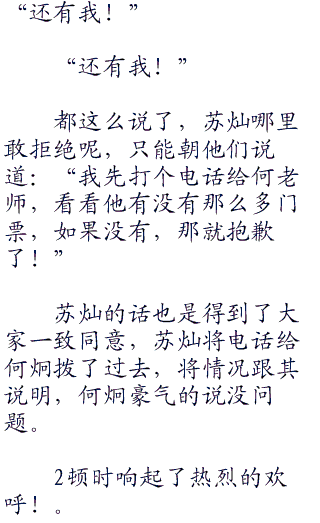 “还有我！”
“还有我！”
都这么说了，苏灿哪里
敢拒绝呢，只能朝他们说
道：“我先打个电话给何老
师，看看他有没有那么多门
票，如果没有，那就抱歉
了！”
苏灿的话也是得到了大
家一致同意，苏灿将电话给
何炯拨了过去，将情况跟其
说明，何炯豪气的说没问
题。
2顿时响起了热烈的欢
呼！。